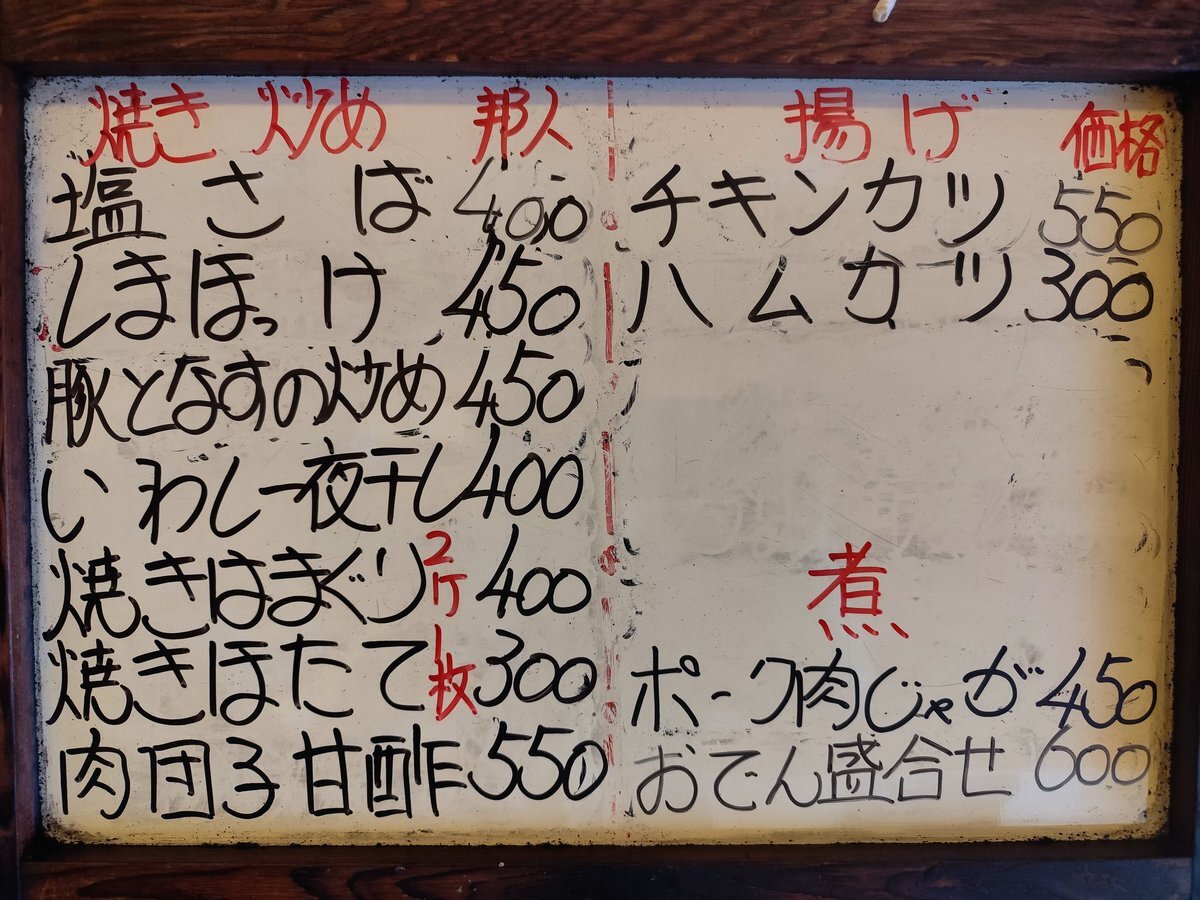 焼き 炒め 邦人
塩さば 400
しまほっけ 450
豚となすの炒め 450
いわし一夜干し 400
焼きはまぐり 2ケ 400
焼きほたて 1枚 300
肉団子甘酢 550
揚げ 価格
チキンカツ 550
ハムカツ 300
煮
ポーク肉じゃが 450
おでん盛合せ 600